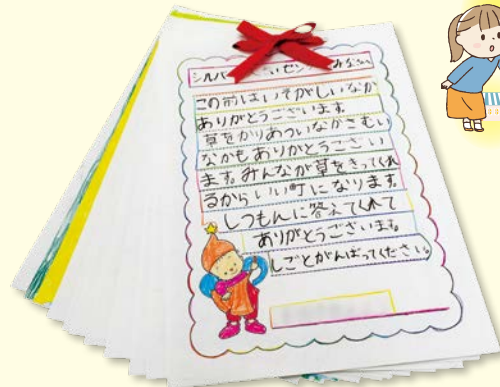 シルバー いセン みなさん
この前はいそがしいなか
ありがとうございます。
草をかりあついなかさむい
なかもありがとうござい
ます。みんなが草をきってくれ
るからいい町になります。
しつもんに答えてくれて
ありがとうございます。
しごとがんばってください。